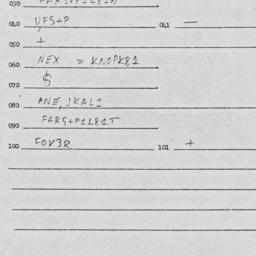 030 FARS+P1L81A
040 UFS+P 041 —
050 +
060 NEX = KNOPK81
070 $
080 ANE, 1KAL1
090 FARS+P1L81T
100 FOV3R 101 +